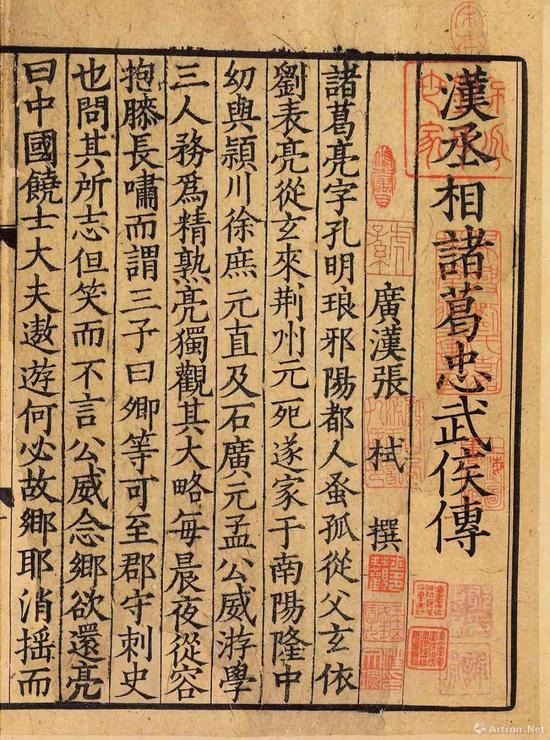 漢丞相諸葛忠武侯傳
廣漢張栻撰
諸葛亮字孔明琅邪陽都人蚤孤從父玄依
劉表亮從玄來荆州元死遂家于南陽隆中
幼與潁川徐庶元直及石廣元孟公威游學
三人務爲精熟亮獨觀其大略每晨夜從容
抱膝長嘯而謂三子曰卿等可至郡守刺史
也問其所志但笑而不言公威念鄉欲還亮
曰中國饒士大夫遨遊何必故鄉耶消摇而
Artron.Net